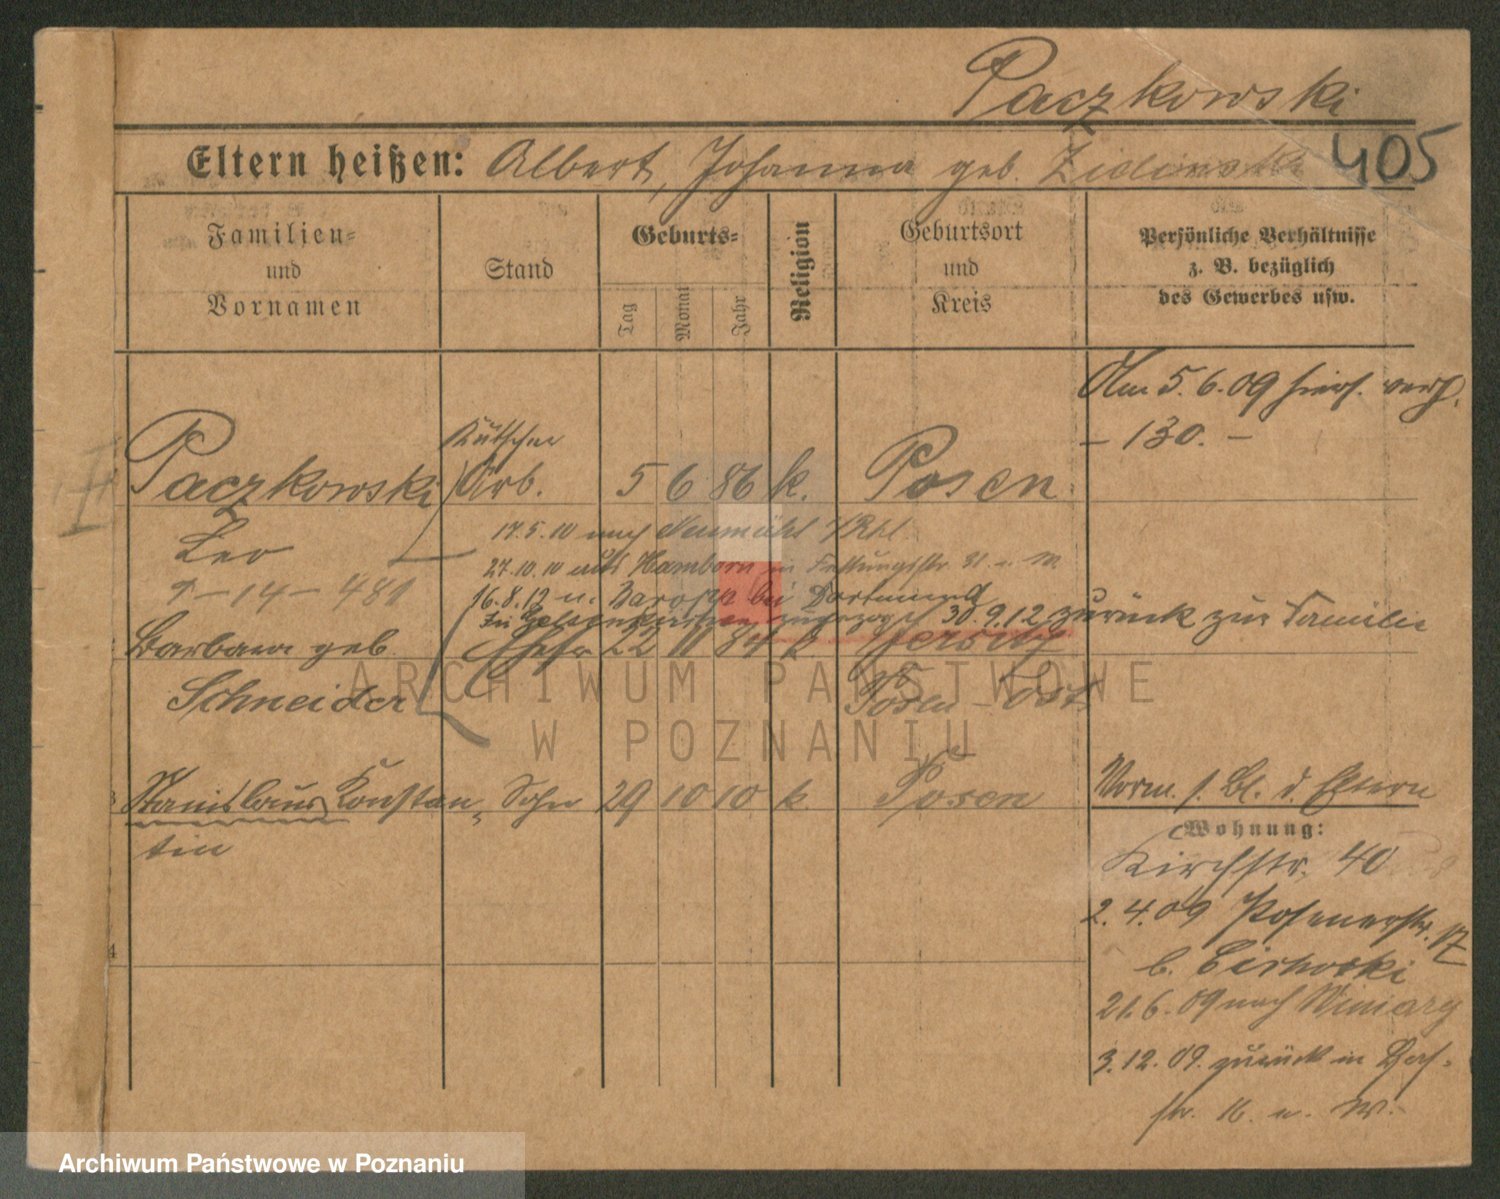 Paczkowski
405
Eltern heißen: Albert, Johanna geb.
Familien-
und
Vornamen
Stand
Geburts-
Tag
Monat
Jahr
Religion
Geburtsort
und
Kreis
Persönliche Verhältnisse
z. B. bezüglich
des Gewerbes usw.
Am 5.6.09 hier. verh.
- 130. -
Kutscher
Paczkowski Arb. 5 6 86 k. Posen
Leo
17.5.10 nach Neumühl
27.10.10 aus Hamborn in 31 u. W.
16.8.12 n. Barop bei Dortmund
zu Gelsenkirchen 30.9.12 zurück zur Familie
Barbara geb. Ehefr 22 11 84 k Jersitz
Schneider Posen-Ost
3 Stanislaus Konstan- Sohn 29 10 10 k Posen
tin
Vorm. s. Bl. d. Eltern
Wohnung:
Kirchstr. 40
2.4.09 Posenerstr. 17
b.
21.6.09 nach Winiary
3.12.09. zurück in
str. 16. u. W.
4
ARCHIWUM PAŃSTWOWE
W POZNANIU
Archiwum Państwowe w Poznaniu